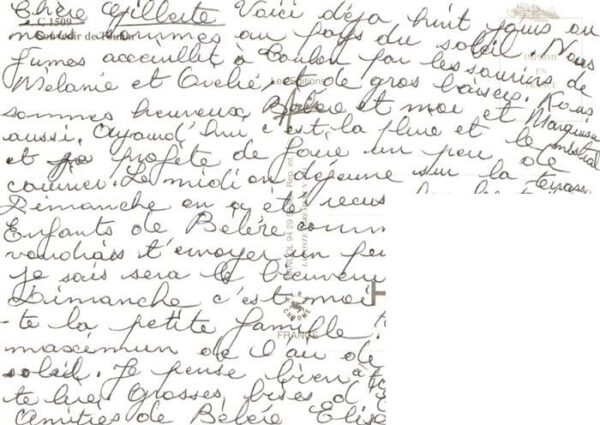 Chère Gilberte Voici déja huit jours que
nous sommes au pays du soleil. Nous
fumes accueillet à Toulon par les sourires de
Mélanie et et de gros baisers. Nous
sommes heureux Bébère et moi et Marquise
aussi. Aujourd'hui c'est la pluie et le mistral
et je profite de faire un peu de
courrier. Le midi on déjeune sur la terrasse
Dimanche on a été recus
Enfants de Bébère comm
voudrais t'envoyer un peu
je sais sera le bienvenu
Dimanche c'est moi
-te la petite famille
maximum de l'air de
soleil. Je pense bien a to
te lire Grosses bises d
Amitiés de Bébère Elise
C 1509
Souvenir de
IMPRIMÉ
EN
Les Editions
FRANCE